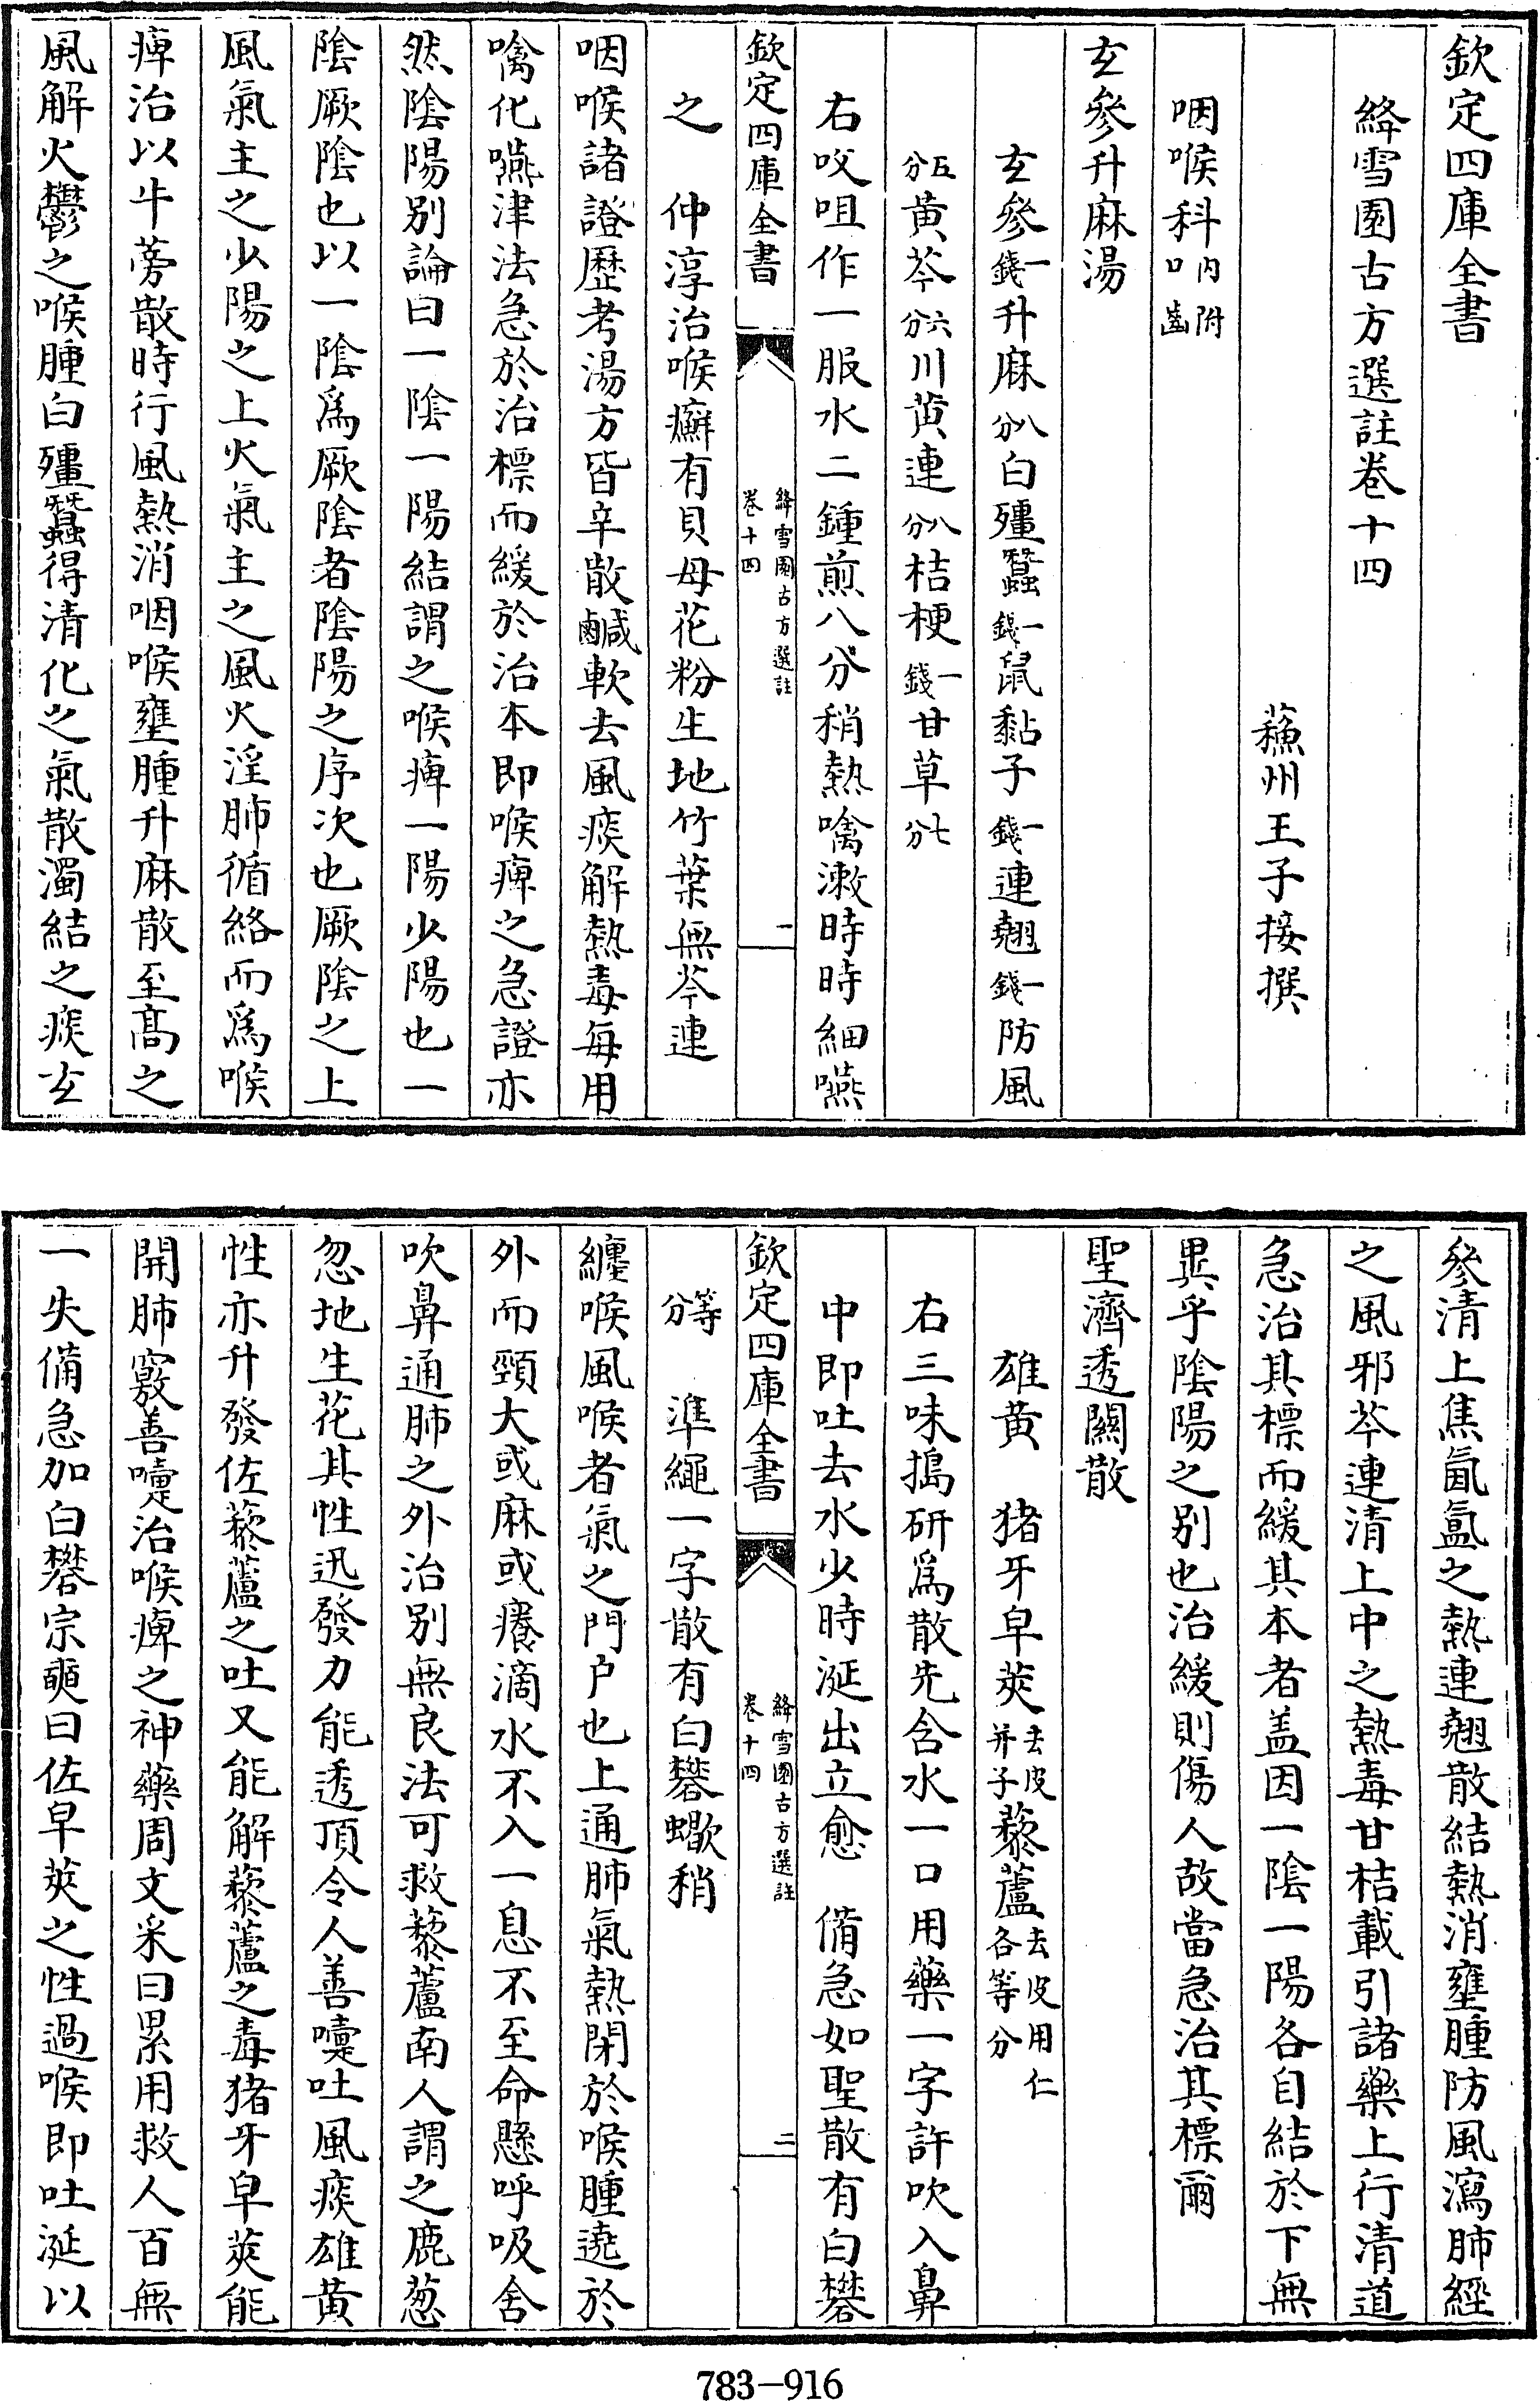 欽定四庫全書
絳雪園古方選註卷十四
蘓州王子接撰
咽喉科內附口齒
玄參升麻湯
玄參一錢升麻八分白殭蠶一錢鼠黏子一錢連翹一錢防風
五分黃芩六分川黃連八分桔梗一錢甘草七分
右㕮咀作一服水二鍾煎八分稍熱噙漱時時細嚥
欽定四庫全書
絳雪園古方選註
卷十四
一
之　仲淳治喉癬有貝母花粉生地竹葉無芩連
咽喉諸證歷考湯方皆辛散鹹軟去風痰解熱毒每用
噙化嚥津法急於治標而緩於治本即喉痺之急證亦
然陰陽別論曰一陰一陽結謂之喉痺一陽少陽也一
陰厥陰也以一陰爲厥陰者陰陽之序次也厥陰之上
風氣主之少陽之上火氣主之風火淫肺循絡而爲喉
痺治以牛蒡散時行風熱消咽喉壅腫升麻散至高之
風解火鬱之喉腫白殭蠶得清化之氣散濁結之痰玄
參清上焦氤氲之熱連翹散結熱消壅腫防風瀉肺經
之風邪芩連清上中之熱毒甘桔載引諸藥上行清道
急治其標而緩其本者盖因一陰一陽各自結於下無
異乎陰陽之別也治緩則傷人故當急治其標爾
聖濟透關散
雄黃　猪牙皁莢去皮并子藜蘆去皮用仁各等分
右三味搗研爲散先含水一口用藥一字許吹入鼻
中即吐去水少時涎出立愈　備急如聖散有白礬
欽定四庫全書
絳雪園古方選註
卷十四
二
等分　準繩一字散有白礬蠍稍
纏喉風喉者氣之門户也上通肺氣熱閉於喉腫遶於
外而頸大或麻或癢滴水不入一息不至命懸呼吸舍
吹鼻通肺之外治別無良法可救藜蘆南人謂之鹿葱
忽地生花其性迅發力能透頂令人善嚏吐風痰雄黃
性亦升發佐藜蘆之吐又能解藜蘆之毒猪牙皁莢能
開肺竅善嚏治喉痺之神藥周文采曰累用救人百無
一失備急加白礬宗奭曰佐皁莢之性過喉即吐涎以
783-916